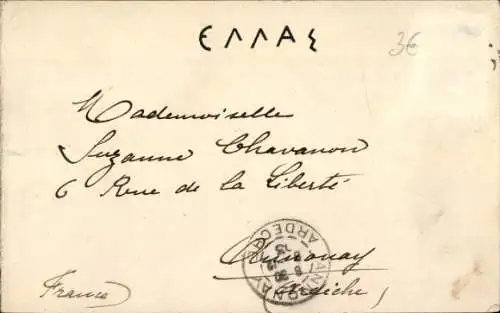 ΕΛΛΑΣ
3€
Mademoiselle
Suzanne Chavanon
6 Rue de la Liberté
Annonay
Ardèche
France
ANNONAY
ARDECHE